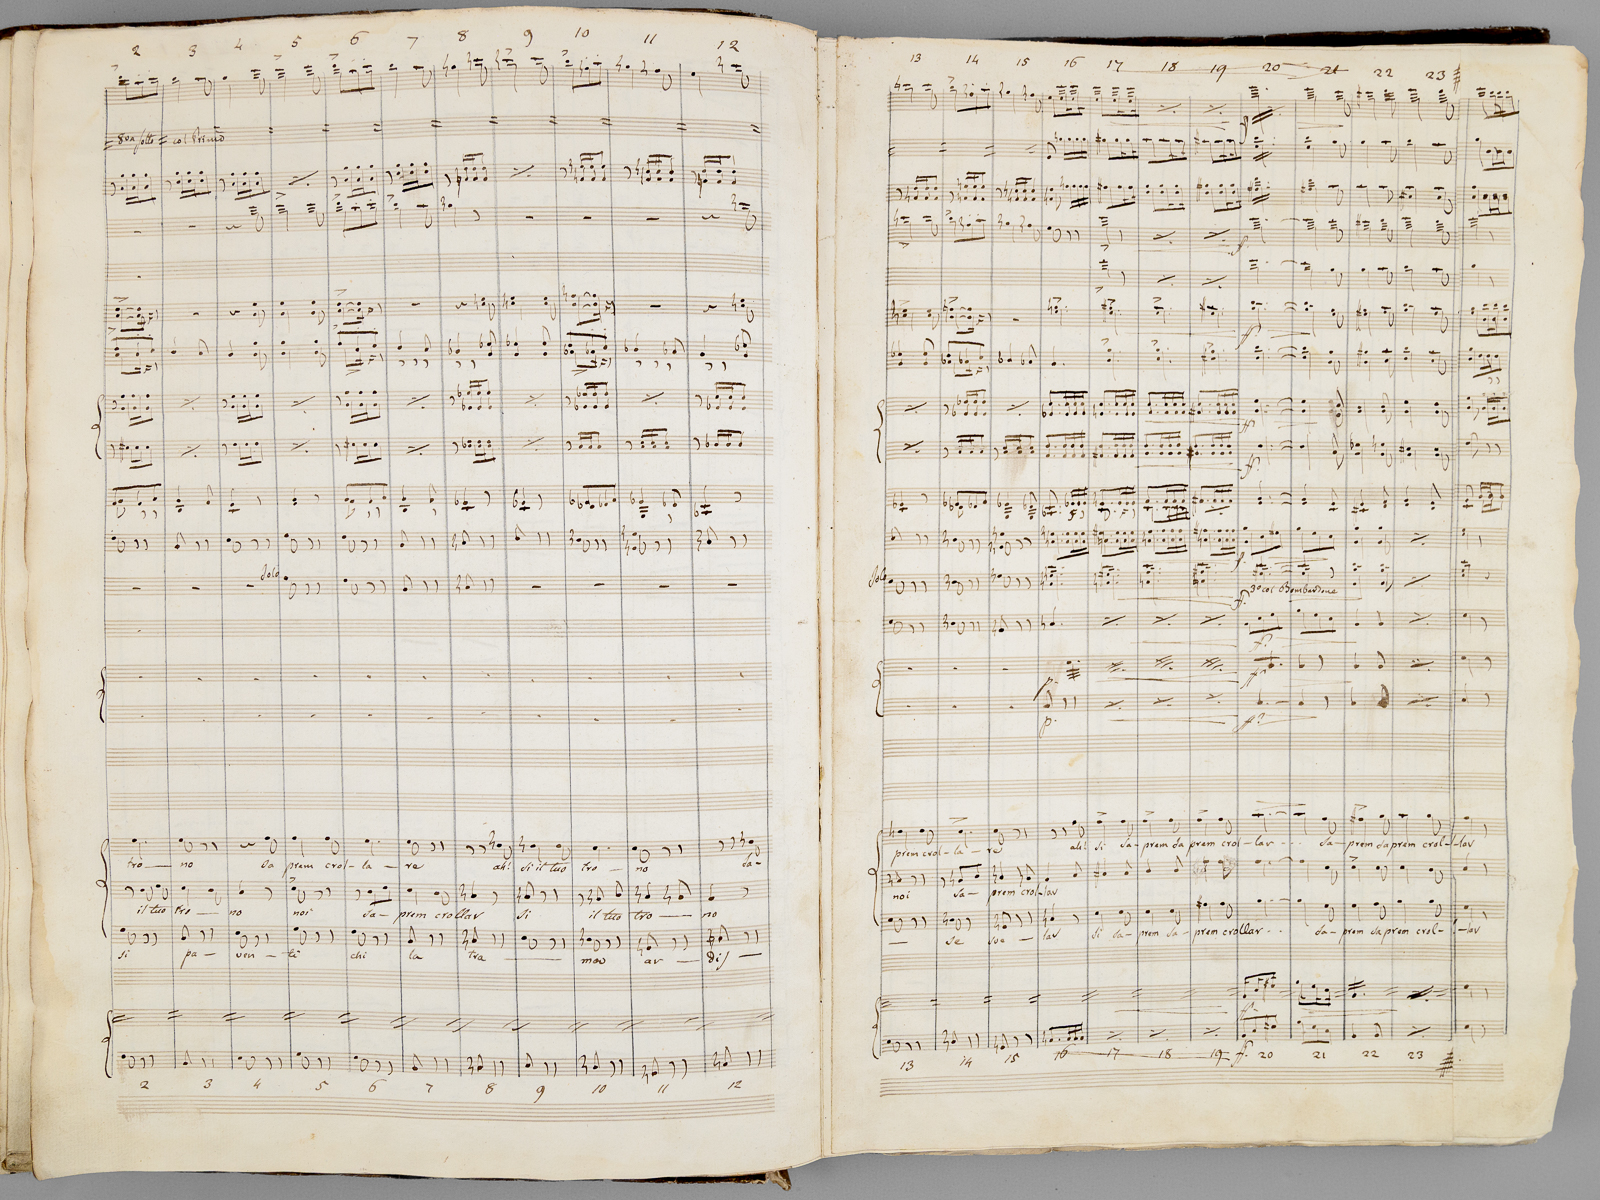 2 3 4 5 6 7 8 9 10 11 12
8va sotto col Primo
Solo
tro — no sa prem crol - la - re ah! si il tuo tro — no sa -
il tuo tro — no noi sa - prem crollar si il tuo tro — no
si pa - ven - ti chi la tra
2 3 4 5 6 7 8 9 10 11 12
13 14 15 16 17 18 19 20 21 22 23
Solo
3º col Bombardone
p.
p.
prem crol - la - re ah! si sa - prem sa prem crol - lar - - sa - prem sa prem crol - lar
noi sa - prem crol - lar
si sa - prem sa - prem crollar - - sa - prem sa prem crol - lar
13 14 15 16 17 18 19 f. 20 21 22 23